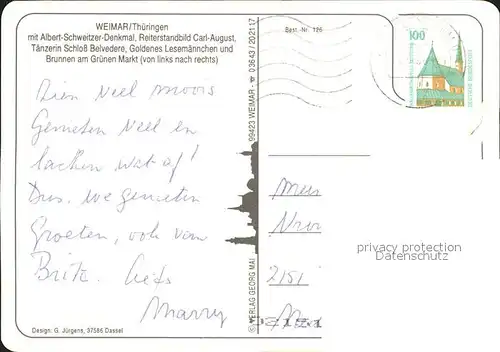 WEIMAR/Thüringen
mit Albert-Schweitzer-Denkmal, Reiterstandbild Carl-August,
Tänzerin Schloß Belvedere, Goldenes Lesemännchen und
Brunnen am Grünen Markt (von links nach rechts)
Best.-Nr. 126
100
DEUTSCHE BUNDESPOST
Zien veel moois
Genieten veel en
lachen wat af!
Dus. we genieten
Groeten, ook van
Britz. Liefs
Marry
© VERLAG GEORG MAI
99423 WEIMAR · ☎ 03643 / 202117
2151
privacy protection
Datenschutz
Design: G. Jürgens, 37586 Dassel